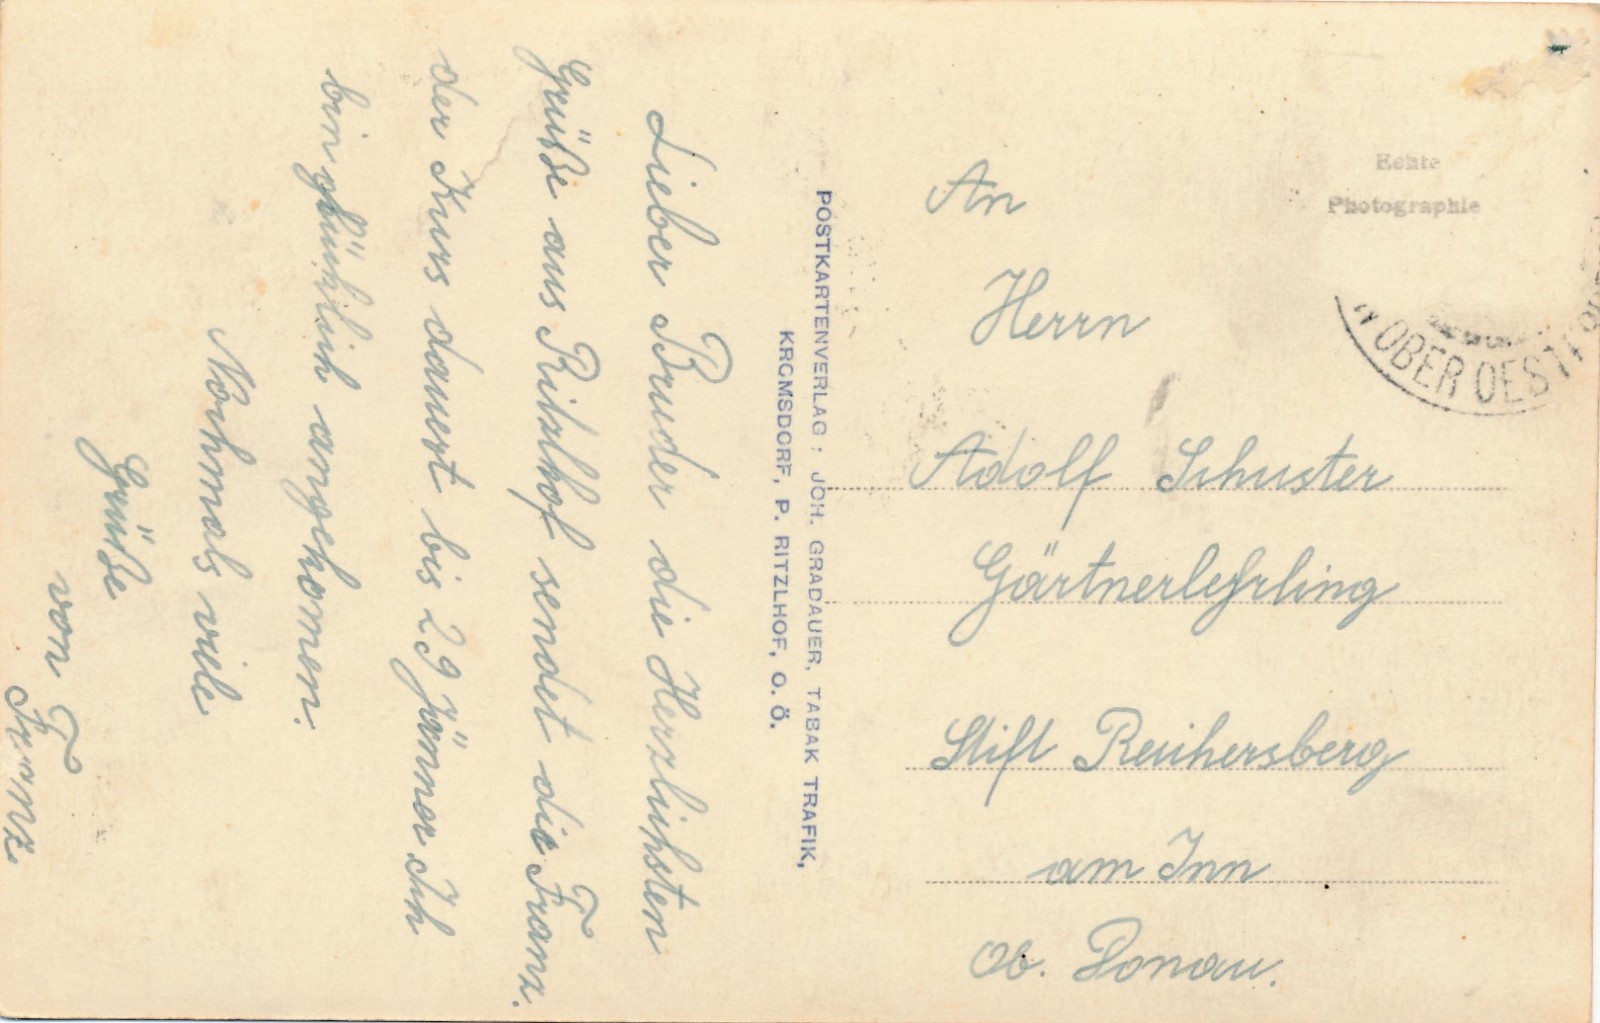 Lieber Bruder die Herzlichsten
Grüße aus Ritzlhof sendet die Franz.
der Kurs dauert bis 29 Jänner Ich
bin glücklich angekomen.
Nochmals viele
Grüße
von
Franz
POSTKARTENVERLAG: JOH. GRADAUER, TABAK TRAFIK,
KROMSDORF, P. RITZLHOF, O. Ö.
Echte
Photographie
OBER OEST
An
Herrn
Adolf Schuster
Gärtnerlehrling
Stift Reichersberg
am Inn
Ob. Donau.